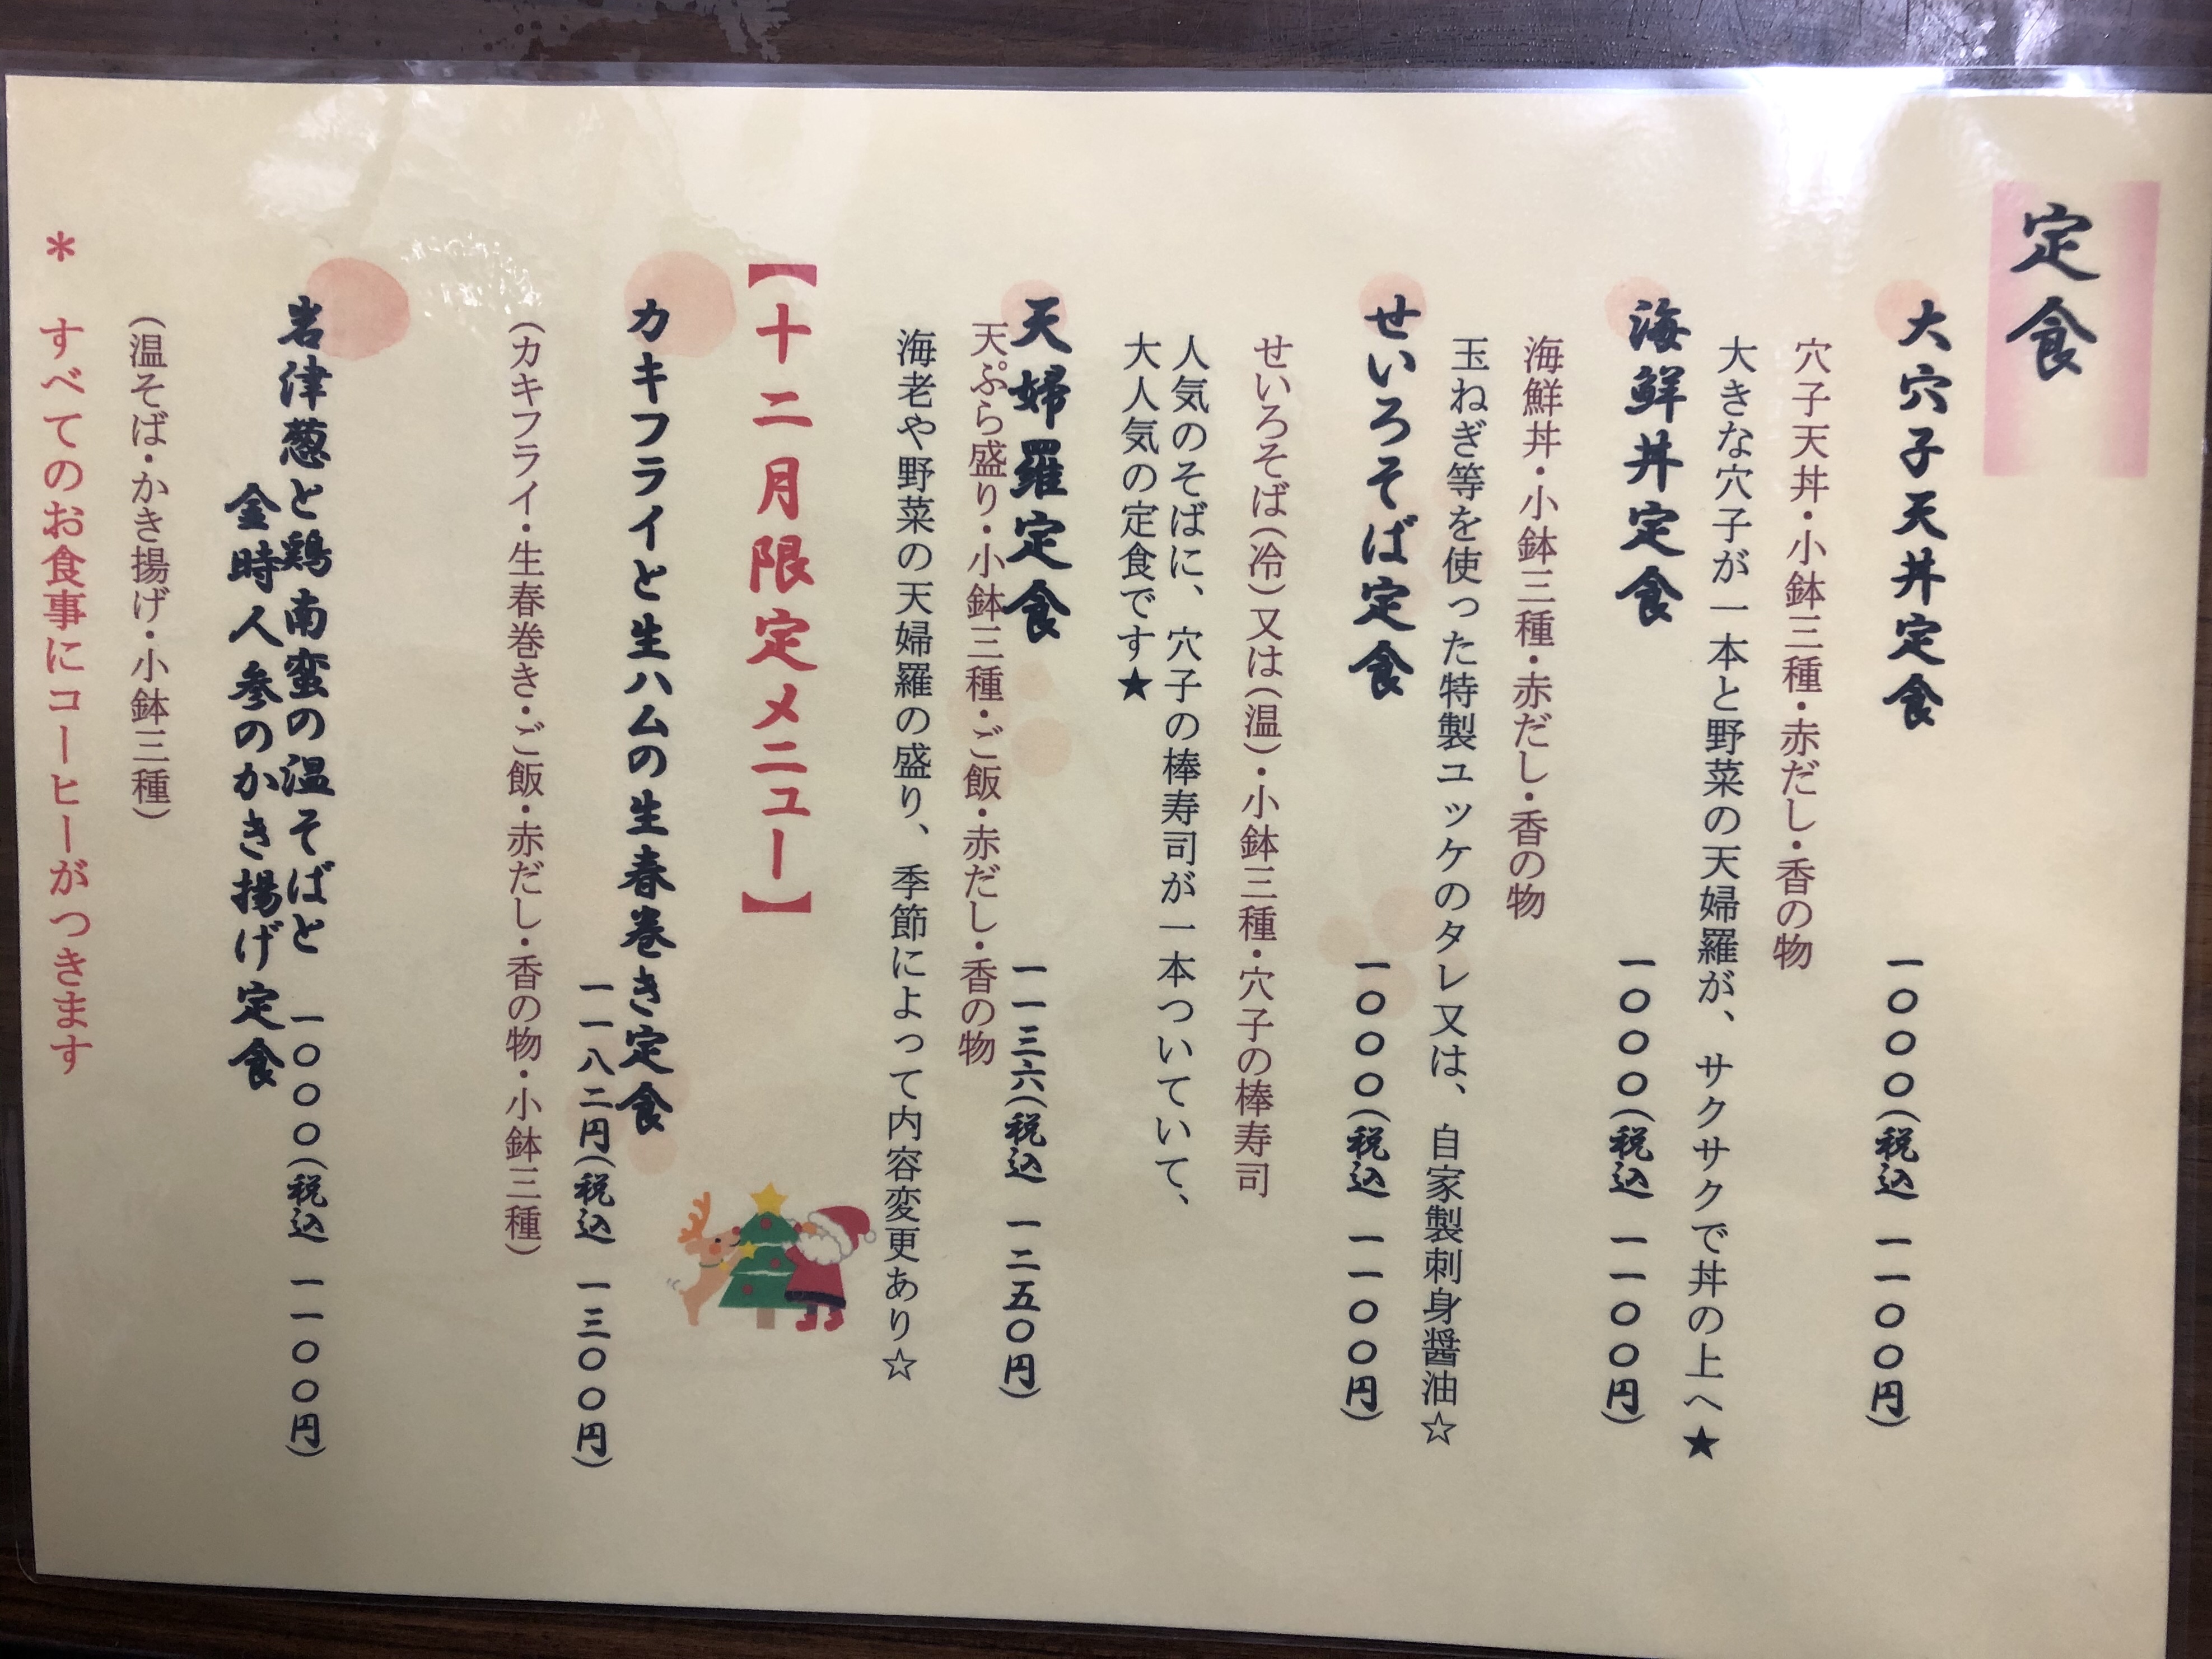 定食
大穴子天丼定食 一〇〇〇(税込 一一〇〇円)
穴子天丼・小鉢三種・赤だし・香の物
大きな穴子が一本と野菜の天婦羅が、サクサクで丼の上へ★
海鮮丼定食 一〇〇〇(税込 一一〇〇円)
海鮮丼・小鉢三種・赤だし・香の物
玉ねぎ等を使った特製ユッケのタレ又は、自家製刺身醤油☆
せいろそば定食 一〇〇〇(税込 一一〇〇円)
せいろそば(冷)又は(温)・小鉢三種・穴子の棒寿司
人気のそばに、穴子の棒寿司が一本ついていて、
大人気の定食です★
天婦羅定食 一一三六(税込 一二五〇円)
天ぷら盛り・小鉢三種・ご飯・赤だし・香の物
海老や野菜の天婦羅の盛り、季節によって内容変更あり☆
【十二月限定メニュー】
カキフライと生ハムの生春巻き定食
一一八二円(税込 一三〇〇円)
(カキフライ・生春巻き・ご飯・赤だし・香の物・小鉢三種)
岩津葱と鶏南蛮の温そばと 一〇〇〇(税込 一一〇〇円)
金時人参のかき揚げ定食
(温そば・かき揚げ・小鉢三種)
＊ すべてのお食事にコーヒーがつきます